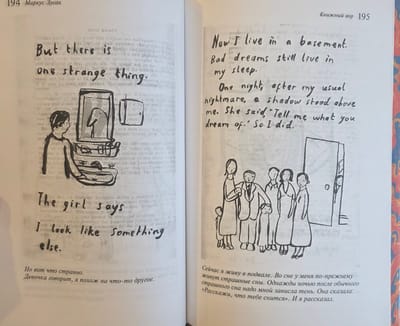 194
Маркус Зузак
But there is
one strange thing.
The girl says
I look like something
else.
Но вот что странно.
Девочка говорит, я похож на что-то другое.
Книжный вор
195
Now I live in a basement.
Bad dreams still live in
my sleep.
One night, after my usual
nightmare, a shadow stood above
me. She said "Tell me what you
dream of." So I did.
Сейчас я живу в подвале. Во сне у меня по-прежнему
живут страшные сны. Однажды ночью после обычного
страшного сна надо мной зависла тень. Она сказала:
«Расскажи, что тебе снится». И я рассказал.